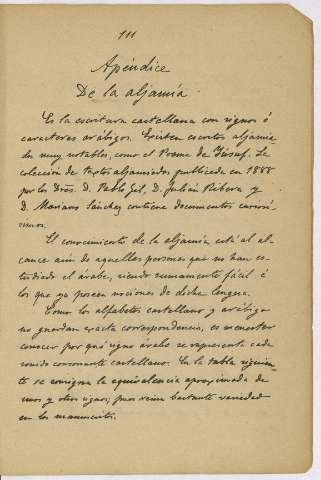 111
Apéndice
De la aljamía.
Es la escritura castellana con signos ó
caracteres arábigos. Existen escritos aljamia-
dos muy notables, como el Poema de Yúsuf. La
colección de textos aljamiados publicada en 1888
por los Dres. D. Pablo Gil, D. Julián Ribera y
D. Mariano Sánchez contiene documentos curiosí-
simos.
El conocimiento de la aljamía está al al-
cance aún de aquellas personas que no han es-
tudiado el árabe, siendo sumamente fácil á
los que ya poseen nociones de dicha lengua.
Como los alfabetos castellano y arábigo
no guardan exacta correspondencia, es menester
conocer por qué signo árabe se representa cada
sonido consonante castellano. En la tabla siguien-
te se consigna la equivalencia aproximada de
unos y otros signos; pues reina bastante variedad
en los manuscritos.